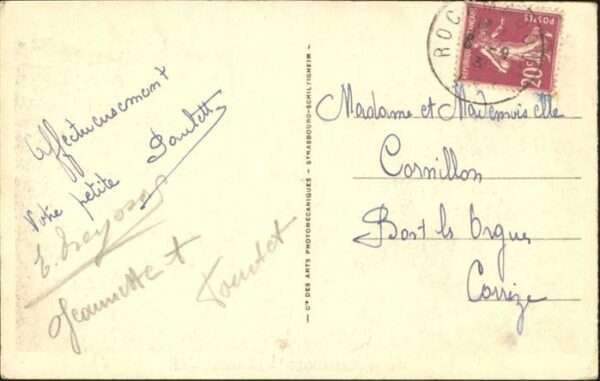 Affectueusement
Votre petite Paulette
Jeannette t.
Cie DES ARTS PHOTOMÉCANIQUES - STRASBOURG-SCHILTIGHEIM -
ROC
POSTES
20c
Madame et Mademoiselle
Cornillon
Bort les Orgues
Corrèze